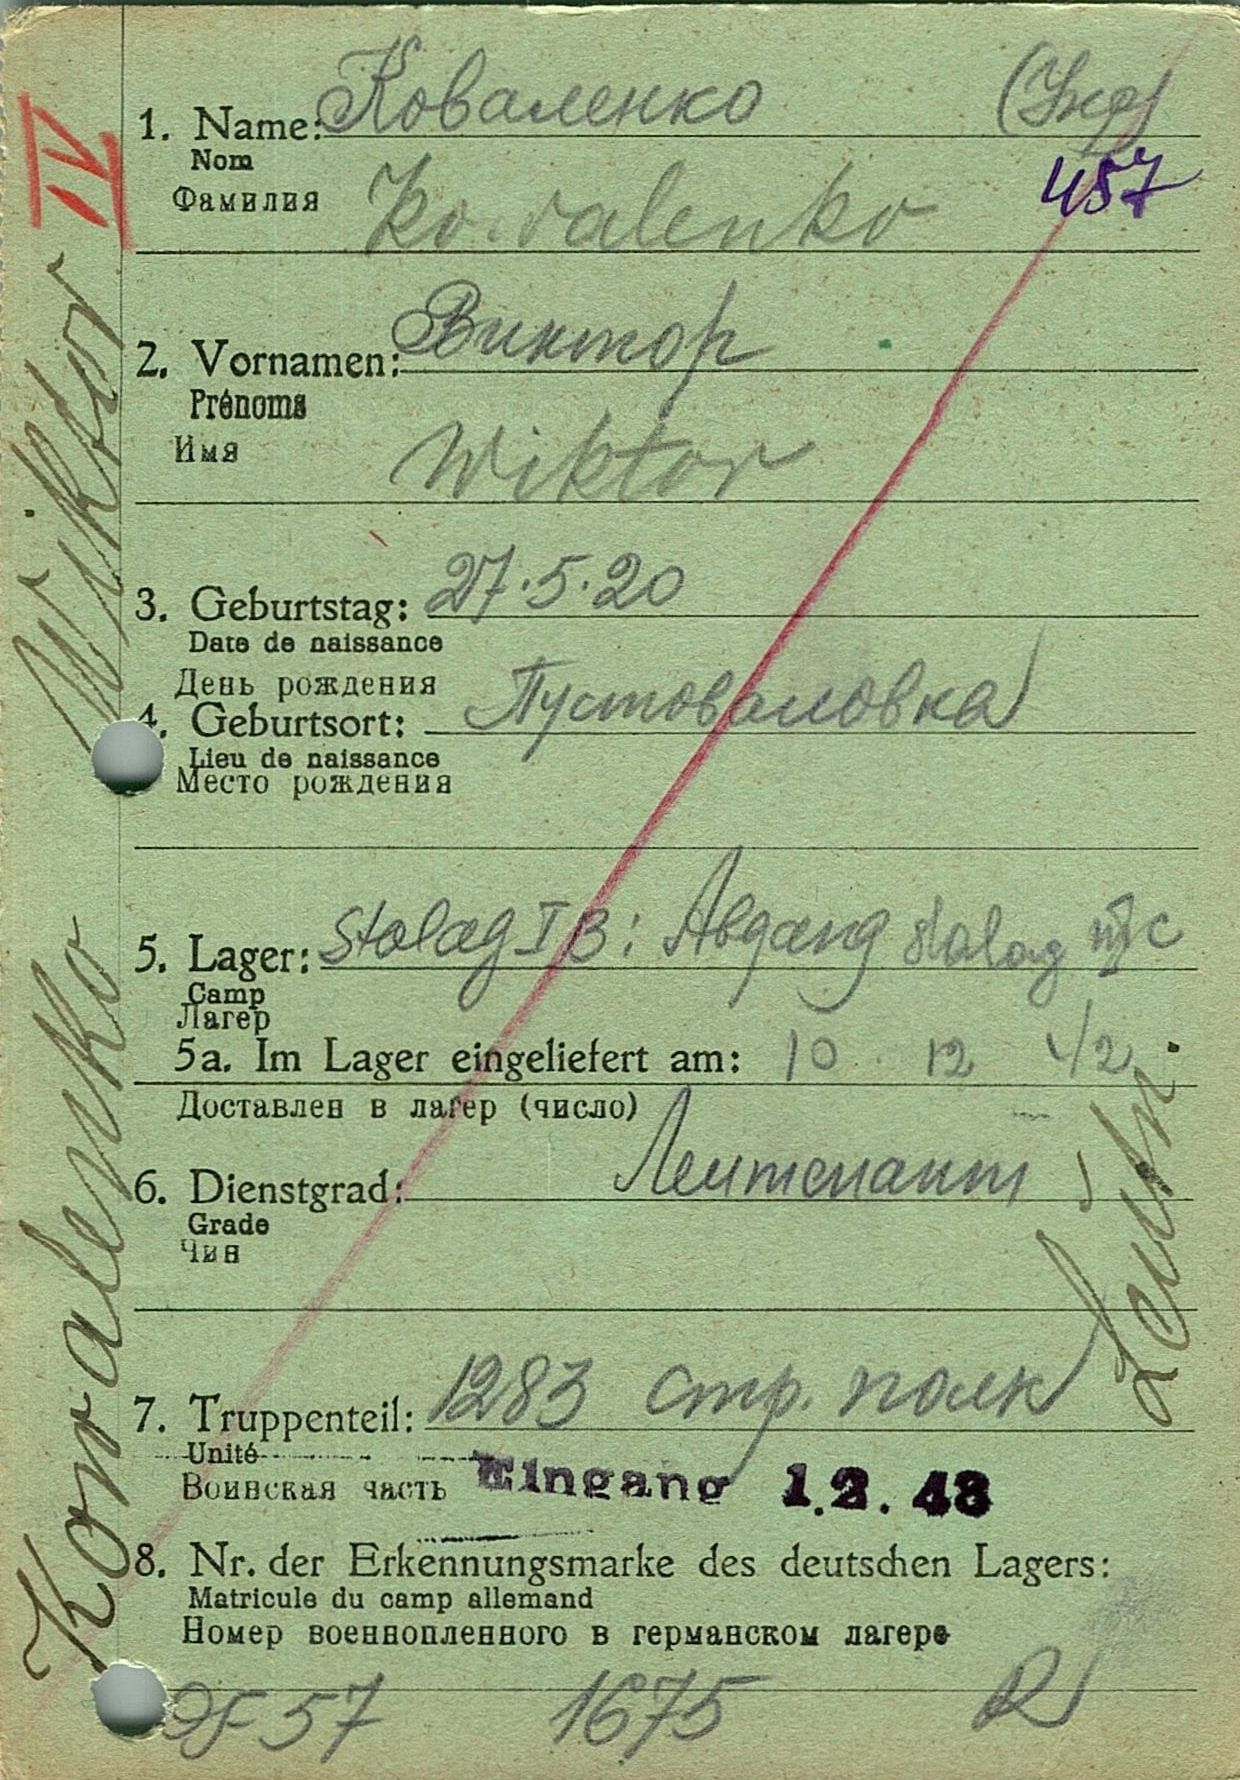 IV
1. Name: Коваленко (Укр)
Nom
457
Фамилия
Kowalenko
2. Vornamen: Виктор
Prénoms
Имя
Wiktor
3. Geburtstag: 27.5.20
Date de naissance
День рождения
4. Geburtsort: Пустоваловка
Lieu de naissance
Место рождения
5. Lager: Stalag I B: Abgang Stalag
Camp
Лагер
5a. Im Lager eingeliefert am: 10 12 42
Доставлен в лагер (число)
6. Dienstgrad: Лейтенант
Grade
Чин
Leutn.
7. Truppenteil: 1283 стр. полк
Unité
Воинская часть
Eingang 1.2.43
8. Nr. der Erkennungsmarke des deutschen Lagers:
Matricule du camp allemand
Номер военнопленного в германском лагере
Of 57 1675 R
Kowalenko Wiktor